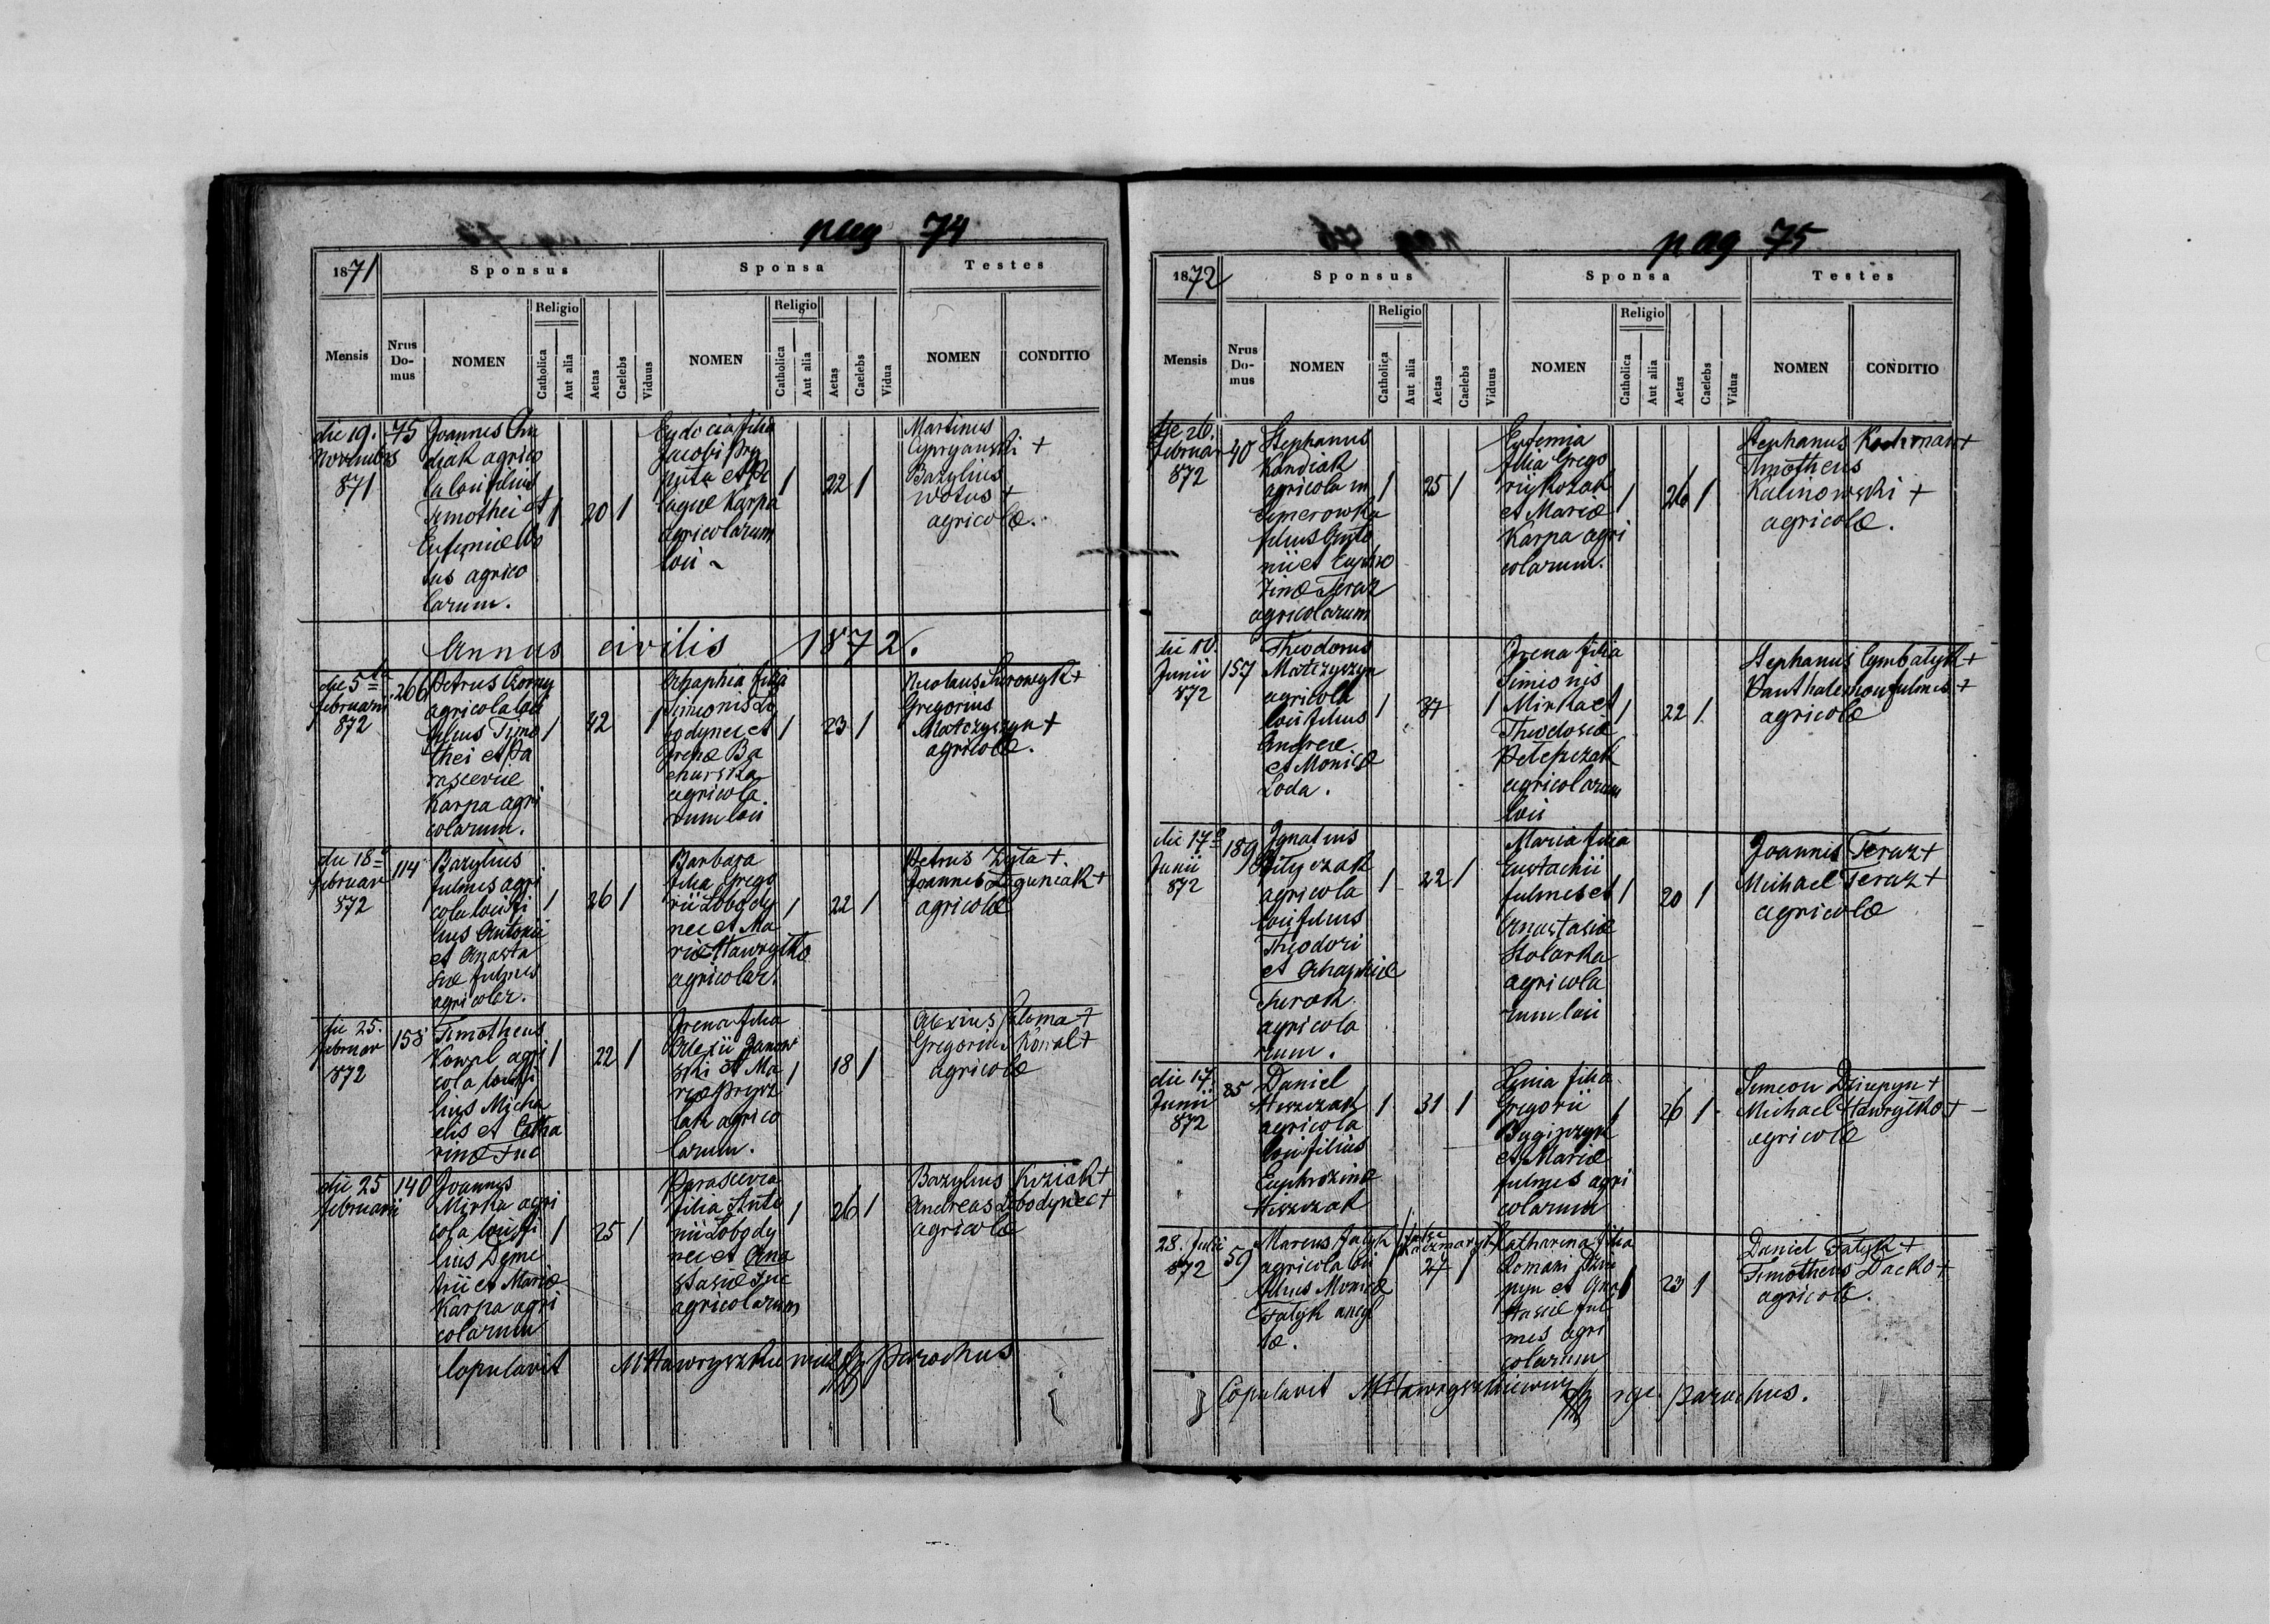 pag 74
1871 Sponsus Sponsa Testes
Mensis Nrus Do-mus NOMEN Religio Catholica Aut alia Aetas Caelebs Viduus NOMEN Religio Catholica Aut alia Aetas Caelebs Vidua NOMEN CONDITIO
die 19.
Novembris
871
75
Joannes Chu
diak agrico
la loci filius
Timothei et
Eufemiæ Wo
tus agrico
larum.
/ 20 /
Eudocia filia
Jacobi Pry
puta et Pe
lagiæ Karpa
agricolarum
loci
/ 22 /
Martinus
Cypryanski +
Bazylius
Wotus +
agricolæ.
Annus civilis 1872.
die 5ta
februarii
872
266
Petrus Czorny
agricola loci
filius Timo
thei et Pa
rasceviæ
Karpa agri
colarum.
/ 42 /
Ahaphia filia
Simionis Lo
bodynec et
Irenæ Ba
churska
agricola
rum loci
/ 23 /
Nicolaus Skorowyk +
Gregorius
Matczyszyn +
agricolæ.
die 18ª
februar
872
114
Bazylius
fulmes agri
cola loci fi
lius Antonii
et Anasta
siæ fulmes
agricolar.
/ 26 /
Barbara
filia Grego
rii Lobody
nec et Ma
riæ Hawryłko
agricolar.
/ 22 /
Petrus Zyta +.
Joannes Laguniak +
agricolæ
die 25.
februar
872
158
Timotheus
Kowal agri
cola loci fi
lius Micha
elis et Catha
rinæ Fuc
/ 22 /
Irena filia
Alexii Janow
ski et Ma
riæ Prysz
lak agrico
larum.
/ 18 /
Alexius Saloma +
Gregorius Kowal +
agricolæ
die 25
februarii
140
Joannes
Mirka agri
cola loci fi
lius Deme
trii et Mariæ
Karpa agri
colarum
/ 25 /
Parascevia
filia Anto
nii Lobody
nec et Ana
stasiæ Fuc
agricolarum
/ 26 /
Bazylius Koziak +
Andreas Lobodynec +
agricolæ
Copulavit M Hawryszkiewicz parochus
pag 75
1872 Sponsus Sponsa Testes
Mensis Nrus Do-mus NOMEN Religio Catholica Aut alia Aetas Caelebs Viduus NOMEN Religio Catholica Aut alia Aetas Caelebs Vidua NOMEN CONDITIO
die 26.
februar
872
40
Stephanus
Kandiak
agricola in
Semerowka
filius Anto
nii et Euphro
zinæ Teraz
agricolarum
/ 25 /
Eufemia
filia Grego
rii Kozak
et Mariæ
Karpa agri
colarum.
/ 26 /
Stephanus Kochman +
Timotheus
Kalinowski +
agricolæ.
die 10.
Junii
872
157
Theodorus
Matczyszyn
agricola
loci filius
Andreæ
et Monicæ
Loda.
/ 37 /
Irena filia
Simionis
Mirka et
Theodosiæ
Petepczak
agricolarum
loci
/ 22 /
Stephanus Cymbalyk +
Panthalemon fulmes +
agricolæ
die 17ª
Junii
872
189
Ignatius
Bityczak
agricola
loci filius
Theodori
et Ahaphiæ
Turok
agricola
rum.
/ 22 /
Maria filia
Eustachii
fulmes et
Anastasiæ
Stolarka
agricola
rum loci
/ 20 /
Joannes Teraz +
Michael Teraz +
agricolæ
die 17.
Junii
872
85
Daniel
Hiszczak
agricola
loci filius
Euphrozinæ
Hiszczak
/ 31 /
Xenia filia
Gregorii
et Mariæ
fulmes agri
colarum
/ 26 /
Simeon Dziupyn +
Michael Hawryłko +
agricolæ
28. Julii
872
59
Marcus Fatyk
agricola loci
filius Monicæ
Fatyk ancil
læ.
/ 27 /
Katharina filia
Romani Dziu
pyn et Ana
stasiæ ful
mes agri
colarum
/ 23 /
Daniel Fatyk +
Timotheus Dacko +
agricolæ.
Copulavit M Hawryszkiewicz parochus.